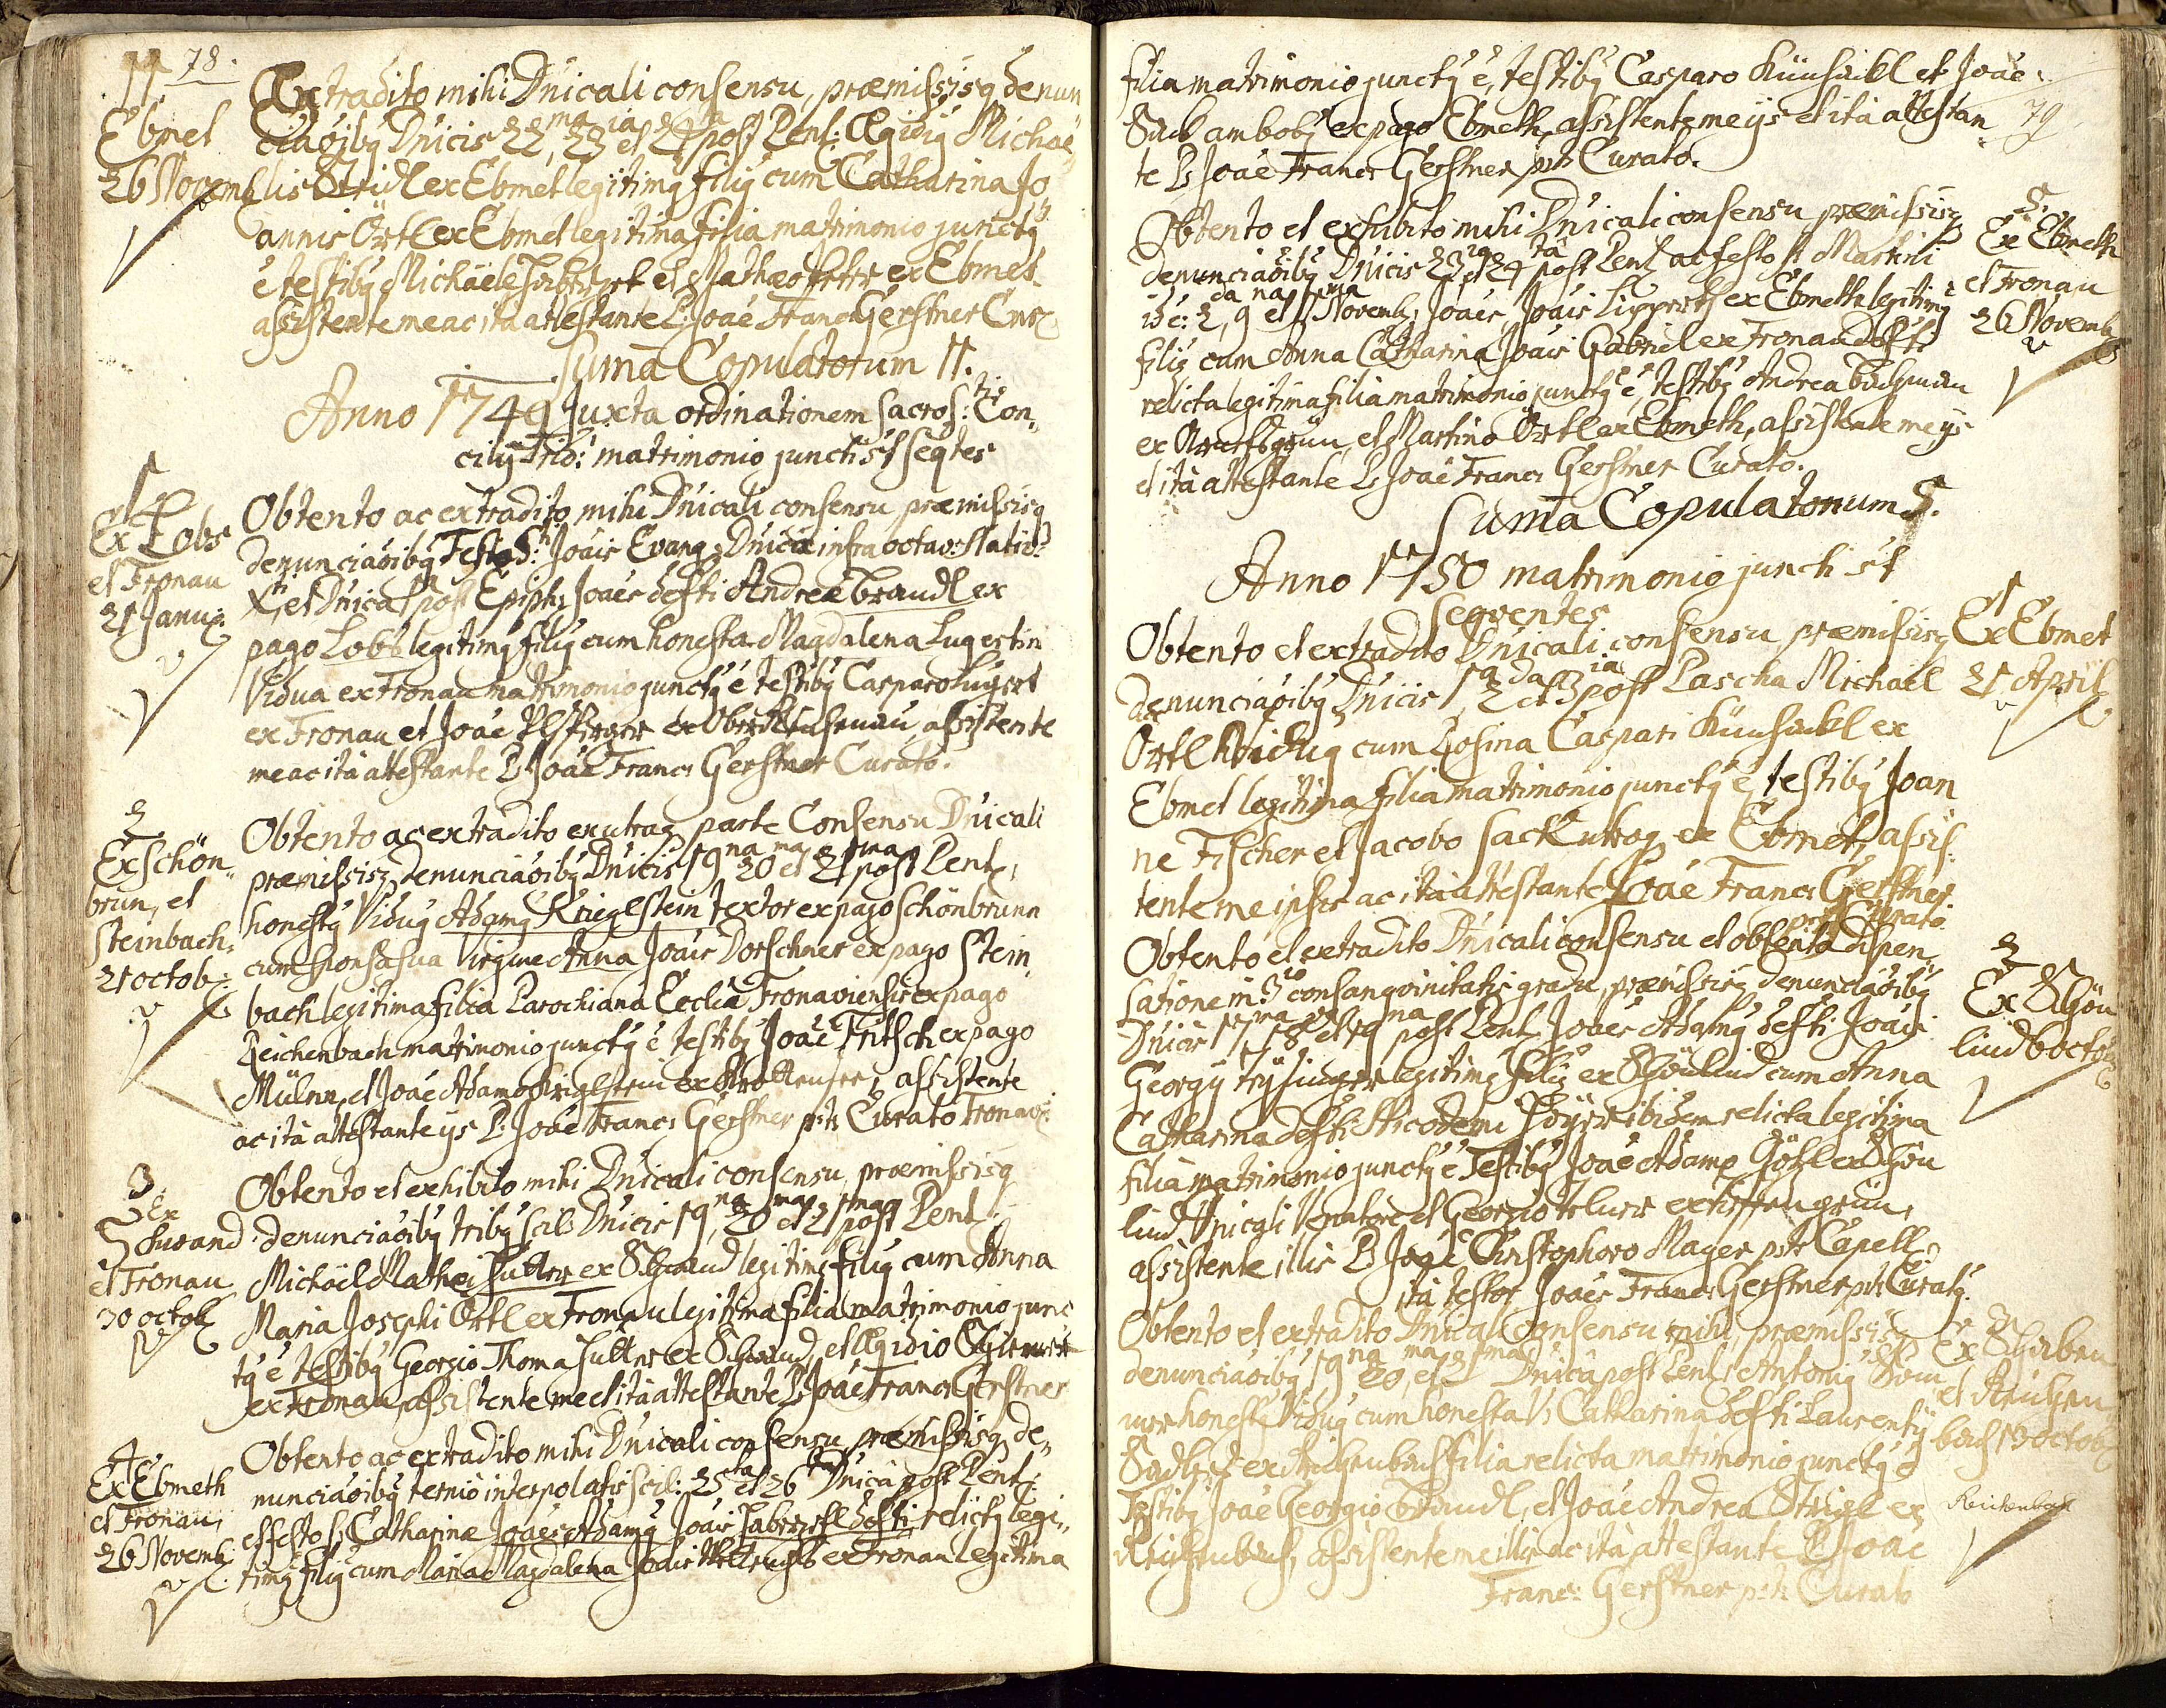 78.
11
Ebmet
26 Novemb
Extradito mihi Dnicali consensu, præmissisq denun
ciaõibq Dnicis 22, 23 et 24 post Pent: Ægidiq Michaë
lis Stridl ex Ebmet legitimq filiq cum Catharina Jo
annis Örtl ex Ebmet legitima filia matrimonio junctq
ē testibq Michäele et Mathæo ex Ebmet
assistente me ac ita attestante P: Joaē Franc: Gerstner Cur:
Suma Copulatorum 11.
Anno 1749 Juxta ordinationem sacros: Con,,
cilÿ Trid: matrimonio juncti st seqtes
1
Ex Lobs
et Fronau
21 Janu:
Obtento ac extradito mihi Dnicali consensu præmissisq
denunciaõibq Festo S: Joais Evang: Dnica infra octav: Nativ:
Xti, et Dnica 1 post Epiph: Joaes defti Andreæ Brandl ex
pago Lobs legitimq filiq cum honesta Magdalena Lugertin
Vidua ex Fronau matrimonio junctq ē testibq Casparo Lugert
ex Fronau et Joaē ex Ober assistente
me ac ita attestante P: Joaē Franc: Gerstner Curato.
2
Ex Schön,,
brun, et
Steinbach:
21 octob:
Obtento ac extradito ex utraq parte Consensu Dnicali
præmissisq denunciaõibq Dnicis 19na 20ma et 21ma post Pent:
honestq Viduq Adamq Krieglstein textor ex pago Schönbrunn
cum sponsa sua Virgine Anna Joais Dorschner ex pago Stein,,
bach legitima filia Parochiana Ecclia Fronaviensis ex pago
Reichenbach matrimonio junctq ē testibq Joaē Fritsch ex pago
Mülnn, et Joaē Adamo Krieglstein ex assistente
ac ita attestante ijs P: Joaē Franc: Gerstner pt: Curato Fronav:
3
Ex
Schwand
et Fronau
30 octob
Obtento et exhibito mihi Dnicali consensu, præmissisq
denunciaõibq tribq scil: Dnicis 19na, 20ma et 21ma post Pent:
Michäel Mathei Suttner ex Schwand legitimq filiq cum Anna
Maria Josephi Örtl ex Fronau legitima filia matrimonio junc
tq ē testibq Georgio Thoma Suttner ex Schwand, et Ægidio
ex Fronau, assistente me et ita attestante P: Joaē Franc: Gerstner
4
Ex Ebmeth
et Fronau,
26 Novemb:
Obtento ac extradito mihi Dnicali consensu præmissisq de,,
nunciaõibq ternio interpolatis scil: 25ta et 26ta Dnica post Pent:
et festo S: Catharinæ Joaes Adamq Joais defti relictq legi,,
timq filiq cum Maria Magdalena Joais ex Fronau legitima
79
filia matrimonio junctq ē, testibq Casparo et Joaē
Sack ambobq ex pago Ebmeth, assistente me ijs et ita attestan
te P: Joaē Franc: Gerstner pt: Curato.
5.
Ex Ebmeth
et Fronau
26 Novemb
Obtento et exhibito mihi Dnicali consensu præmissisq
denunciaõibq Dnicis 23ia et 24ta post Pent: ac festo st Martini
id ē: 2da, 9na et 11ma Novemb: Joaes Joais Lippert ex Ebmeth legitimq
filiq cum Anna Catharina Joais Gabriel ex Fronau defti
relicta legitima filia matrimonio junctq ē, testibq Andrea
ex et Martino Örtl ex Ebmeth, assistente me ijs
et ita attestante P: Joaē Franc: Gerstner Curato.
Suma Copulatorum 5.
Anno 1750 matrimonio juncti st
Seqventes
1
Ex Ebmet
21 April
Obtento et extradito Dnicali consensu præmissisq
denunciaõibq Dnicis 1a 2da et 3ia post Pascha Michaël
Örtl Viduq cum Rosina Caspari ex
Ebmet legitima filia matrimonio junctq ē, testibq Joan
ne Fischer et Jacobo Sack utroq ex Ebmet, assis:
tente me ipsis ac ita attestante Joaē Franc: Gerstner
pt: Curato.
2
Ex Schön
lind 6 octob
Obtento et extradito Dnicali consensu et obtenta dispen,,
satione in 3io consangvinitatis gradu, præmissisq denunciaõibq
Dnicis 17ma 18 et 19na post Pent: Joaes Adamq defti Joais
Georgÿ legitimq filiq ex Schönlind cum Anna
Catharina defti Nicodemi ibidem relicta legitima
filia matrimonio junctq ē Testibq Joaē Adamo Götzl ex Schön
lind Dnicali Venatore et Georgio ex
assistente illis P: Joaē Christophoro Mayer pt: Capell:
ita testor Joaes Franc: Gerstner pt: Curatq.
3
Ex
et Reichen
bach 13 octob
Obtento et extradito Dnicali consensu mihi, præmissisq
denunciaõibq 19na 20ma, et 21ma Dnica post Pent: Antoniq
honestq Viduq cum honesta V: Catharina defti Laurentÿ
ex Reichenbach filia relicta matrimonio junctq ē
Testibq Joaē Georgio Brandl, et Joaē Andrea ex
Reichenbach, assistente me illis ac ita attestante P: Joaē
Franc: Gerstner pt: Curato
Reichenbach